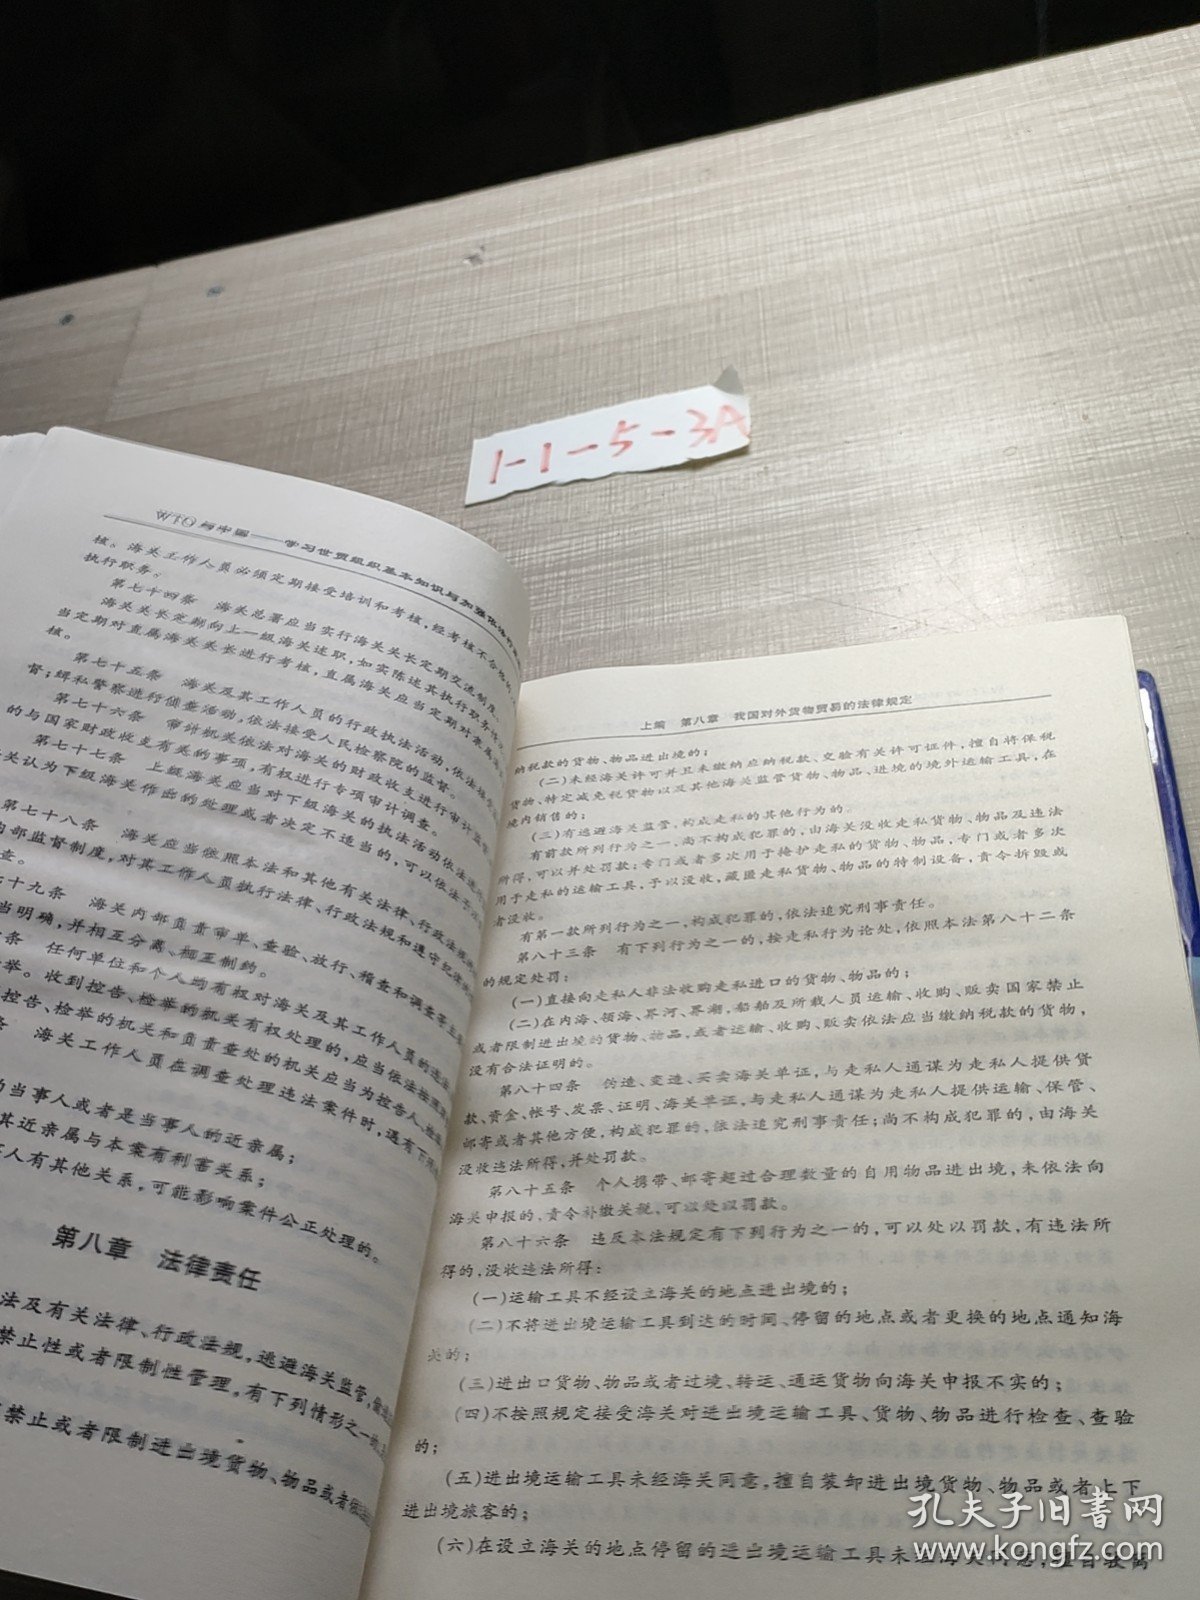 1-1-5-3A
WTO与中国——学习世贸组织基本知识与加强依法行
核。海关工作人员必须定期接受培训和考核,经考核不合格的,
执行职务。
第七十四条 海关总署应当实行海关关长定期交流制度。
海关关长定期向上一级海关述职,如实陈述其执行职务情况。
当定期对直属海关关长进行考核,直属海关应当定期对隶属海
核。
第七十五条 海关及其工作人员的行政执法活动,依法接受
督;缉私警察进行侦查活动,依法接受人民检察院的监督。
第七十六条 审计机关依法对海关的财政收支进行审计监
的与国家财政收支有关的事项,有权进行专项审计调查。
第七十七条 上级海关应当对下级海关的执法活动依法进
关认为下级海关作出的处理或者决定不适当的,可以依法予
第七十八条 海关应当依照本法和其他有关法律、行政法规
内部监督制度,对其工作人员执行法律、行政法规和遵守纪律
查。
十九条 海关内部负责审单、查验、放行、稽查和调查等主
当明确,并相互分离、相互制约。
条 任何单位和个人均有权对海关及其工作人员的违法
举。收到控告、检举的机关有权处理的,应当依法按照
控告、检举的机关和负责查处的机关应当为控告人、检
条 海关工作人员在调查处理违法案件时,遇有下列
的当事人或者是当事人的近亲属;
其近亲属与本案有利害关系;
人有其他关系,可能影响案件公正处理的。
第八章 法律责任
法及有关法律、行政法规,逃避海关监管,偷
禁止性或者限制性管理,有下列情形之一
禁止或者限制进出境货物、物品或者依法
上编 第八章 我国对外货物贸易的法律规定
纳税款的货物、物品进出境的;
(二)未经海关许可并且未缴纳应纳税款、交验有关许可证件,擅自将保税
货物、特定减免税货物以及其他海关监管货物、物品、进境的境外运输工具,在
境内销售的;
(三)有逃避海关监管,构成走私的其他行为的。
有前款所列行为之一,尚不构成犯罪的,由海关没收走私货物、物品及违法
所得,可以并处罚款;专门或者多次用于掩护走私的货物、物品,专门或者多次
用于走私的运输工具,予以没收,藏匿走私货物、物品的特制设备,责令拆毁或
者没收。
有第一款所列行为之一,构成犯罪的,依法追究刑事责任。
第八十三条 有下列行为之一的,按走私行为论处,依照本法第八十二条
的规定处罚:
(一)直接向走私人非法收购走私进口的货物、物品的;
(二)在内海、领海、界河、界湖,船舶及所载人员运输、收购、贩卖国家禁止
或者限制进出境的货物、物品,或者运输、收购、贩卖依法应当缴纳税款的货物,
没有合法证明的。
第八十四条 伪造、变造、买卖海关单证,与走私人通谋为走私人提供贷
款、资金、帐号、发票、证明、海关单证,与走私人通谋为走私人提供运输、保管、
邮寄或者其他方便,构成犯罪的,依法追究刑事责任;尚不构成犯罪的,由海关
没收违法所得,并处罚款。
第八十五条 个人携带、邮寄超过合理数量的自用物品进出境,未依法向
海关申报的,责令补缴关税,可以处以罚款。
第八十六条 违反本法规定有下列行为之一的,可以处以罚款,有违法所
得的,没收违法所得:
(一)运输工具不经设立海关的地点进出境的;
(二)不将进出境运输工具到达的时间、停留的地点或者更换的地点通知海
关的;
(三)进出口货物、物品或者过境、转运、通运货物向海关申报不实的;
(四)不按照规定接受海关对进出境运输工具、货物、物品进行检查、查验
的;
(五)进出境运输工具未经海关同意,擅自装卸进出境货物、物品或者上下
进出境旅客的;
(六)在设立海关的地点停留的进出境运输工具未经海关同意,擅自驶离
孔夫子旧书网
www.kongfz.com